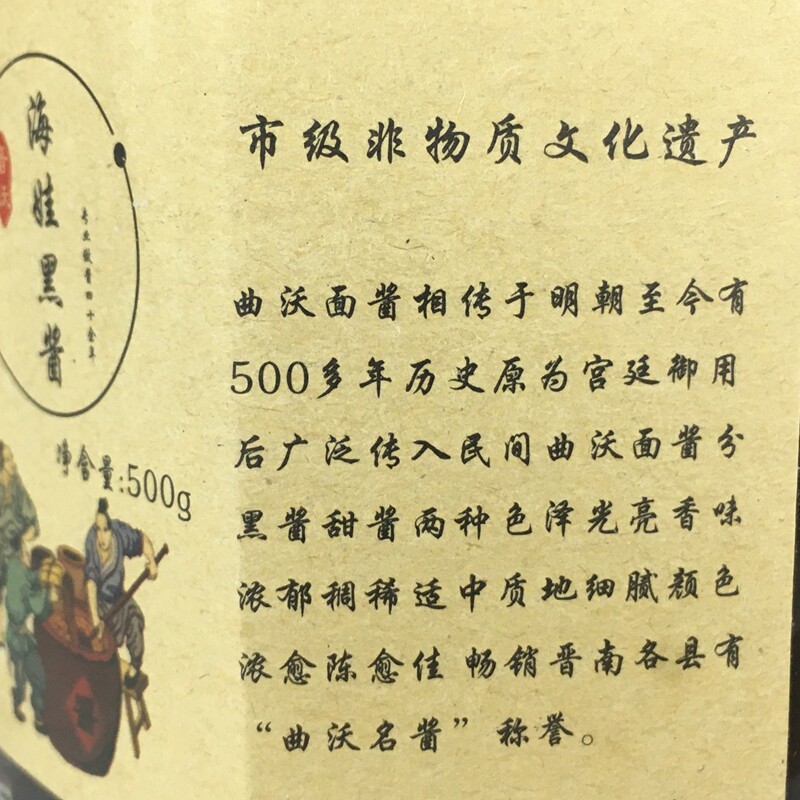 海娃黑酱
专业做酱四十余年
净含量:500g
市级非物质文化遗产
曲沃面酱相传于明朝至今有
500多年历史原为宫廷御用
后广泛传入民间曲沃面酱分
黑酱甜酱两种色泽光亮香味
浓郁稠稀适中质地细腻颜色
浓愈陈愈佳 畅销晋南各县有
“曲沃名酱”称誉。